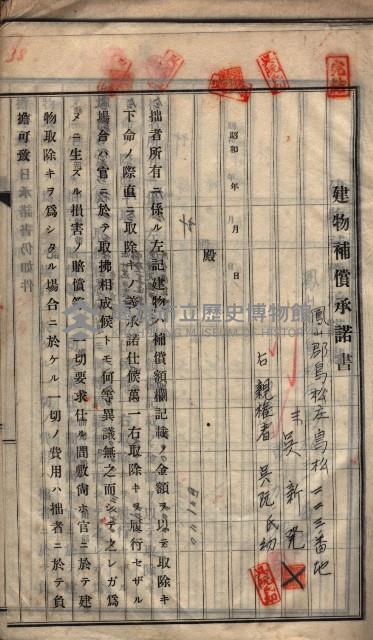 建物補償承諾書
鳳山郡鳥松庄鳥松二二三番地
吳新発
右親權者 吳阮氏幼
昭和 年 月 日
殿
拙者所有ニ係ル左記建物ハ補償額欄記載ノ金額ヲ以テ取除キ
下命ノ際直ニ取除キノ等承諾仕候萬一右取除キヲ履行セザル
場合ハ官ニ於テ取拂相成候トモ何等異議無之而シテ之レガ爲
メニ生ズル損害ノ賠償等一切要求仕ル間敷尚ホ官ニ於テ建
物取除キヲ爲シタル場合ニ於ケル一切ノ費用ハ拙者ニ於テ負
擔可致日承諾書仍如件
38
高雄市立歷史博物館
KAOHSIUNG MUSEUM OF HISTORY